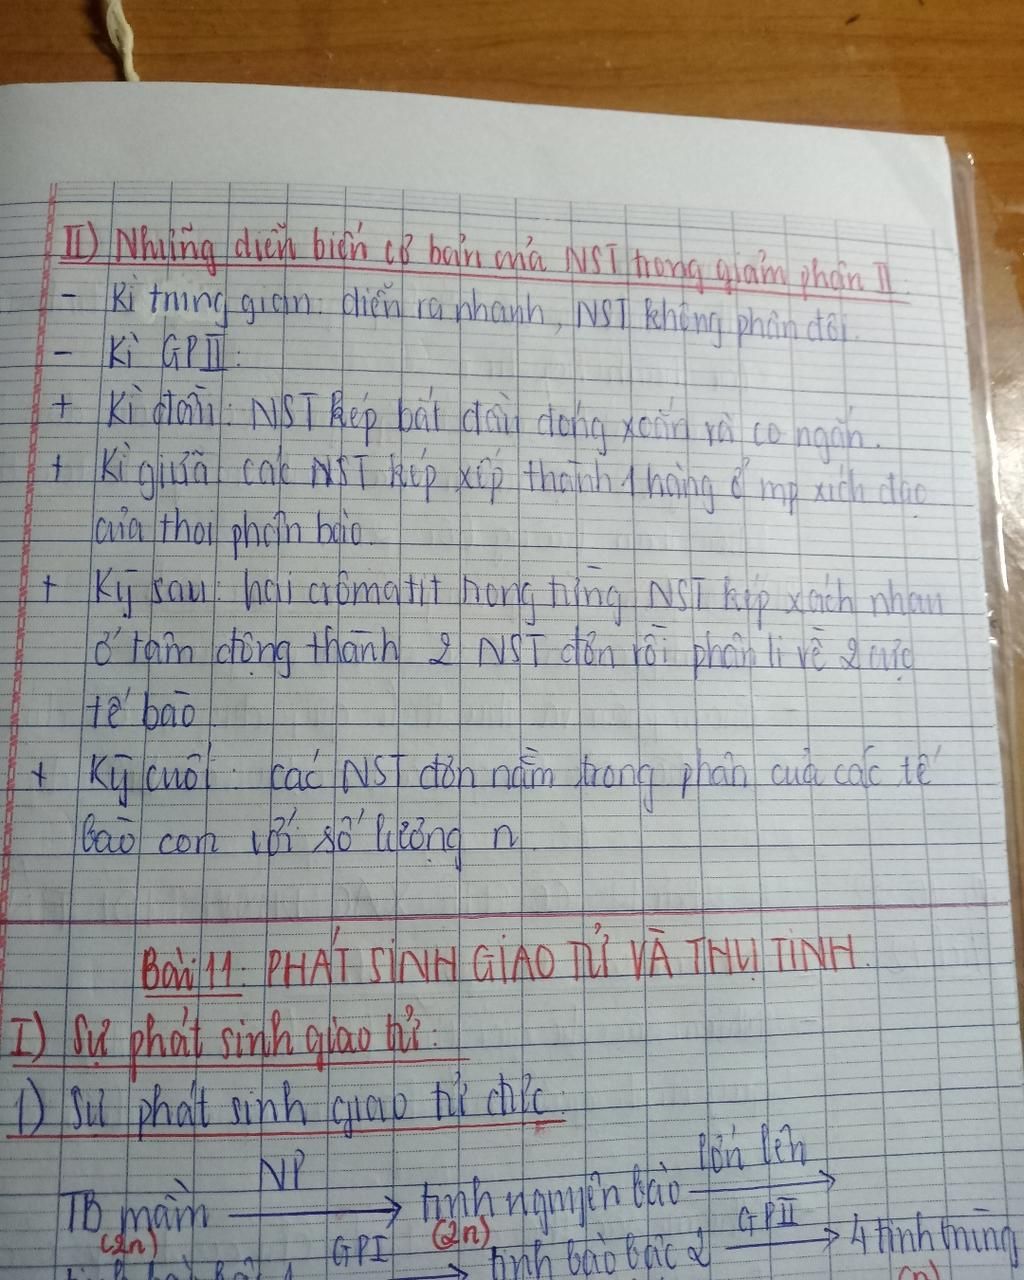 II) Những diễn biến cơ bản của NST trong giảm phân II
- Kì trung gian: diễn ra nhanh, NST không phân đôi.
- Kì GPII:
+ Kì đầu: NST kép bắt đầu đóng xoắn và co ngắn.
+ Kì giữa các NST kép xếp thành 1 hàng ở mp xích đạo
của thoi phân bào.
+ Kỳ sau: hai crômatit trong từng NST kép xách nhau
ở tâm động thành 2 NST đơn rồi phân li về 2 cực
tế bào
+ Kỳ cuối: các NST đơn nằm trong phân của các tế
bào con với số lượng n
Bài 11: PHÁT SINH GIAO TỬ VÀ THỤ TINH.
I) Sự phát sinh giao tử:
1) Sự phát sinh giao tử đực
NP lớn lên
TB mầm → tinh nguyên bào →
(2n) GPI (2n) GPII
tinh bào bậc 2 → 4 tinh trùng
(n)